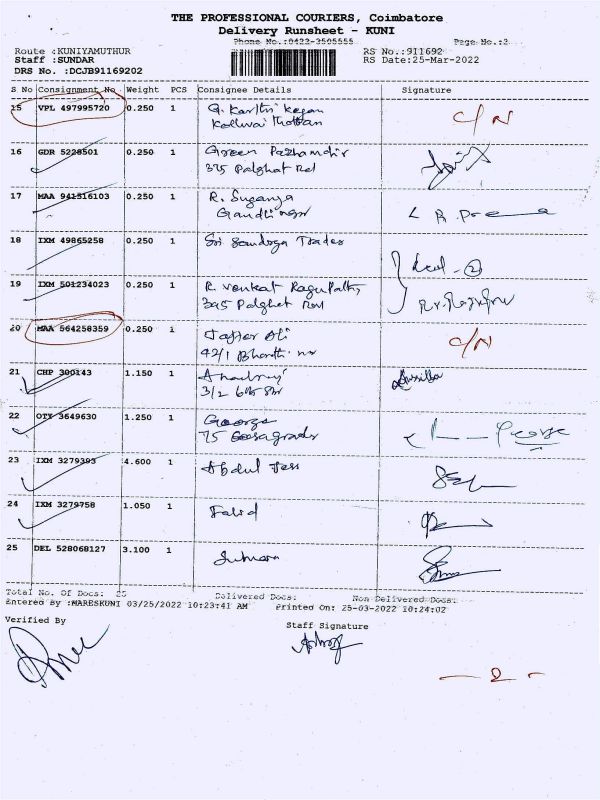 THE PROFESSIONAL COURIERS, Coimbatore
Delivery Runsheet - KUNI
Phone No.:0422-3505555 Page No.:2
Route :KUNIYAMUTHUR RS No.:911692
Staff :SUNDAR RS Date:25-Mar-2022
DRS No. :DCJB91169202
S No Consignment No Weight PCS Consignee Details Signature
15 VPL 497995720 0.250 1 G. Karthi C/N
16 GDR 5228501 0.250 1 Green Pazhamdir
375 Palghat Rd
17 MAA 941516103 0.250 1 R. Suganya
Gandhi ngr
18 IXM 49865258 0.250 1 Sri Traders
19 IXM 501234023 0.250 1 R. Venkat Ragupathy
395 Palghat Rd
20 MAA 564258359 0.250 1 Jaffer Ali C/N
42/1 Bharathi nr
21 CHP 300143 1.150 1
3/2 6th Str
22 OTY 3649630 1.250 1 George George
75
23 IXM 3279393 4.600 1 Abdul
24 IXM 3279758 1.050 1
25 DEL 528068127 3.100 1
Total No. Of Docs: 25 Delivered Docs: Non Delivered Docs:
Entered By :MARESKUNI 03/25/2022 10:23:41 AM Printed On: 25-03-2022 10:24:02
Verified By Staff Signature
- 2 -